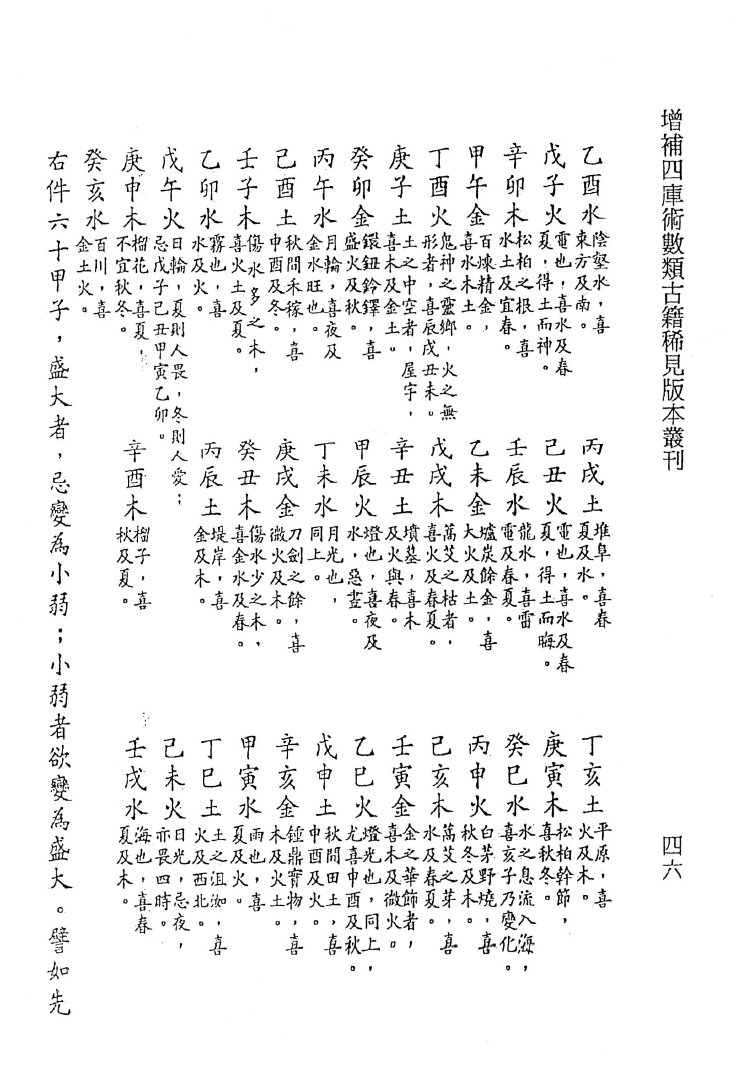 增補四庫術數類古籍稀見版本叢刊
四六
乙酉水 陰壑水，喜東方及南。 丙戌土 堆阜，喜春夏及水。 丁亥土 平原，喜火及木。
戊子火 電也，喜水及春夏，得土而神。 己丑火 電也，喜水及春夏，得土而晦。 庚寅木 松柏幹節，喜秋冬。
辛卯木 松柏之根，喜水土及宜春。 壬辰水 龍水，喜雷電及春夏。 癸巳水 水之息流入海，喜亥子乃變化。
甲午金 百煉精金，喜水木土。 乙未金 爐炭餘金，喜大火及土。 丙申火 白茅野燒，喜秋冬及木。
丁酉火 鬼神之靈鄉，火之無形者，喜辰戌丑未。 戊戌木 蒿艾之枯者，喜火及春夏。 己亥木 蒿艾之芽，喜水及春夏。
庚子土 土之中空者，屋宇，喜木及金土。 辛丑土 墳墓，喜木及火與春。 壬寅金 金之華飾者，喜木及微火。
癸卯金 鐶鈕鈴鐸，喜盛火及秋。 甲辰火 燈也，喜夜及水，惡晝。 乙巳火 燈光也，同上，尤喜申酉及秋。
丙午水 月輪，喜夜及金水旺也。 丁未水 月光也，同上。 戊申土 秋間田土，喜申酉及火。
己酉土 秋間禾稼，喜申酉及冬。 庚戌金 刀劍之餘，喜微火及木。 辛亥金 鍾鼎寶物，喜木及火土。
壬子木 傷水多之木，喜火土及夏。 癸丑木 傷水少之木，喜金水及春。 甲寅水 雨也，喜夏及火。
乙卯水 霧也，喜水及火。 丙辰土 堤岸，喜金及木。 丁巳土 土之沮洳，喜火及西北。
戊午火 日輪，夏則人畏，冬則人愛；忌戊子己丑甲寅乙卯。 己未火 日光，忌夜，亦畏四時。
庚申木 榴花，喜夏，不宜秋冬。 辛酉木 榴子，喜秋及夏。 壬戌水 海也，喜春夏及木。
癸亥水 百川，喜金土火。
右件六十甲子，盛大者，忌變為小弱；小弱者欲變為盛大。譬如先